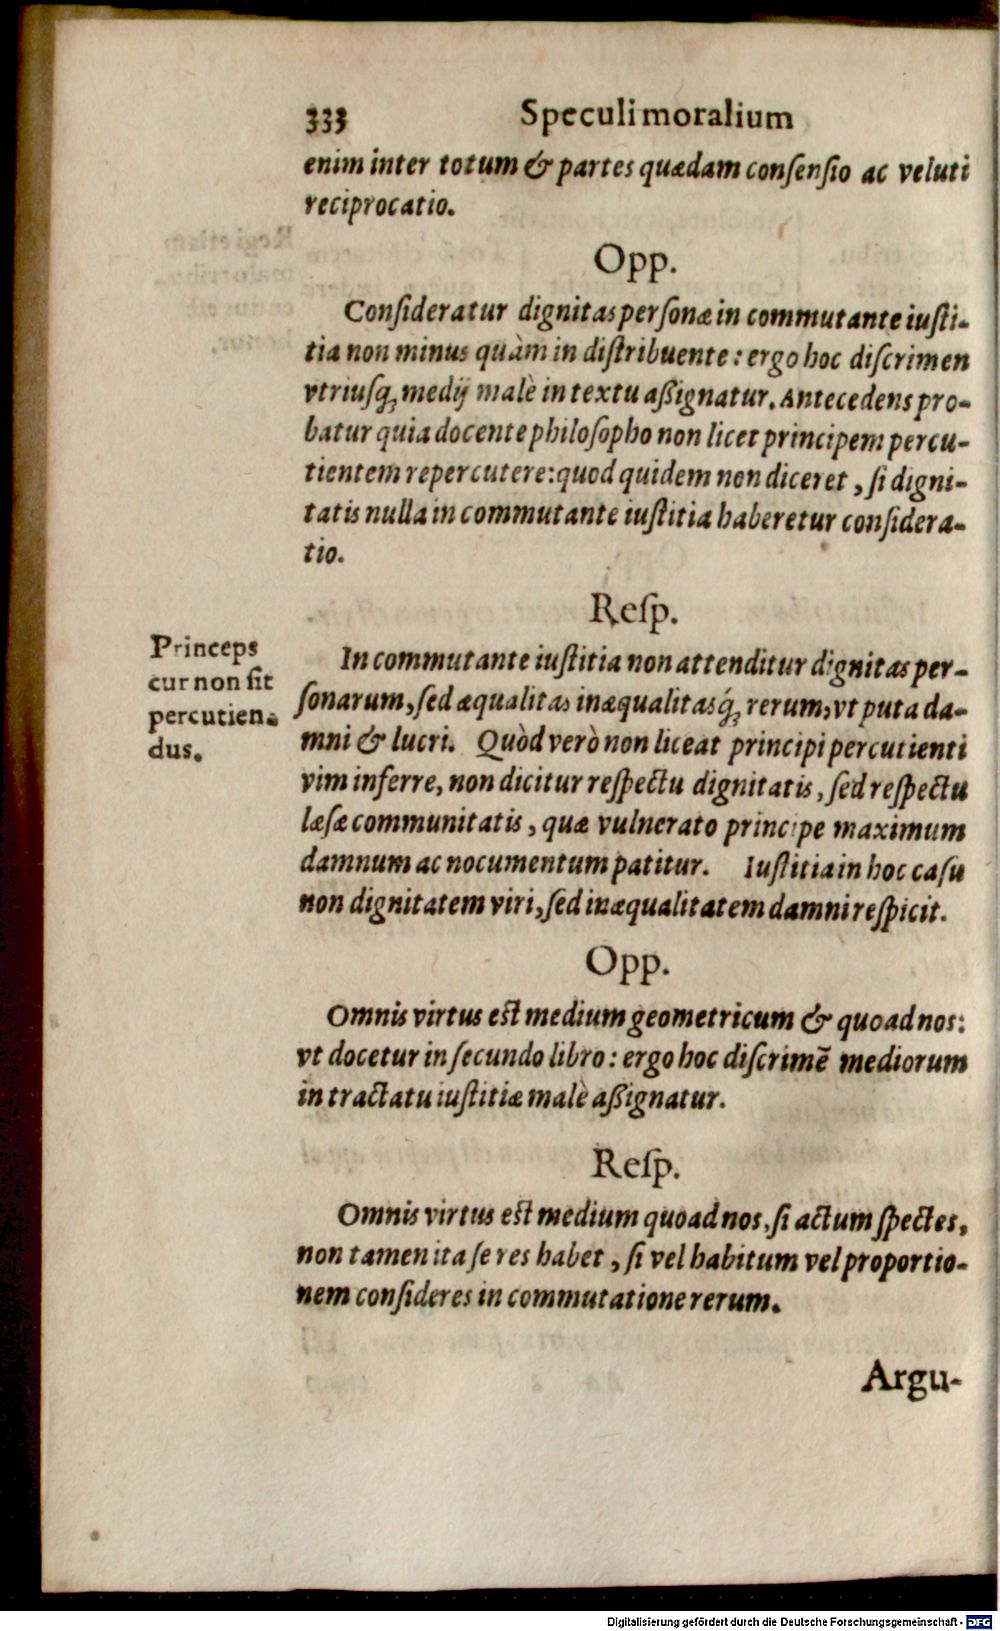 333 Speculi moralium
enim inter totum & partes quædam conſenſio ac veluti
reciprocatio.
Opp.
Conſideratur dignitas perſonæ in commutante iuſti-
tia non minus quàm in diſtribuente: ergo hoc diſcrimen
vtriuſq; medij malè in textu aßignatur. Antecedens pro-
batur quia docente philoſopho non licet principem percu-
tientem repercutere: quod quidem non diceret, ſi digni-
tatis nulla in commutante iuſtitia haberetur conſidera-
tio.
Reſp.
Princeps
cur non ſit
percutien-
dus.
In commutante iuſtitia non attenditur dignitas per-
ſonarum, ſed æqualitas inæqualitasq́; rerum, vt puta da-
mni & lucri. Quòd verò non liceat principi percutienti
vim inferre, non dicitur reſpectu dignitatis, ſed reſpectu
læſæ communitatis, quæ vulnerato principe maximum
damnum ac nocumentum patitur. Iuſtitia in hoc caſu
non dignitatem viri, ſed inæqualitatem damni reſpicit.
Opp.
Omnis virtus eſt medium geometricum & quoad nos:
vt docetur in ſecundo libro: ergo hoc diſcrimẽ mediorum
in tractatu iuſtitiæ malè aßignatur.
Reſp.
Omnis virtus eſt medium quoad nos, ſi actum ſpectes,
non tamen ita ſe res habet, ſi vel habitum vel proportio-
nem conſideres in commutatione rerum.
Argu-
Digitalisierung gefördert durch die Deutsche Forschungsgemeinschaft - DFG